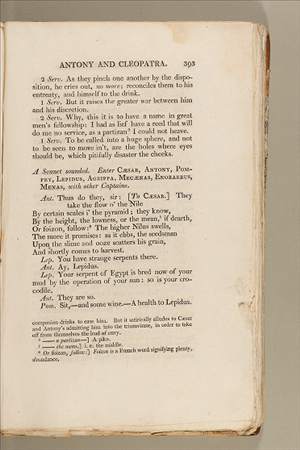 ANTONY AND CLEOPATRA. 393
2 Serv. As they pinch one another by the dispo-
sition, he cries out, no more; reconciles them to his
entreaty, and himself to the drink.
1 Serv. But it raises the greater war between him
and his discretion.
2 Serv. Why, this it is to have a name in great
men's fellowship: I had as lief have a reed that will
do me no service, as a partizan⁶ I could not heave.
1 Serv. To be called into a huge sphere, and not
to be seen to move in't, are the holes where eyes
should be, which pitifully disaster the cheeks.
A Sennet sounded. Enter CÆSAR, ANTONY, POM-
PEY, LEPIDUS, AGRIPPA, MECÆNAS, ENOBARBUS,
MENAS, with other Captains.
Ant. Thus do they, sir: [To CÆSAR.] They
take the flow o' the Nile
By certain scales i' the pyramid; they know,
By the height, the lowness, or the mean,⁷ if dearth,
Or foizon, follow:⁸ The higher Nilus swells,
The more it promises: as it ebbs, the seedsman
Upon the slime and ooze scatters his grain,
And shortly comes to harvest.
Lep. You have strange serpents there.
Ant. Ay, Lepidus.
Lep. Your serpent of Egypt is bred now of your
mud by the operation of your sun: so is your cro-
codile.
Ant. They are so.
Pom. Sit,—and some wine.—A health to Lepidus.
companion drinks to ease him. But it satirically alludes to Cæsar
and Antony's admitting him into the triumvirate, in order to take
off from themselves the load of envy.
⁶ — a partizan—] A pike.
⁷ — the mean,] i. e. the middle.
⁸ Or foizon, follow:] Foizon is a French word signifying plenty,
abundance.